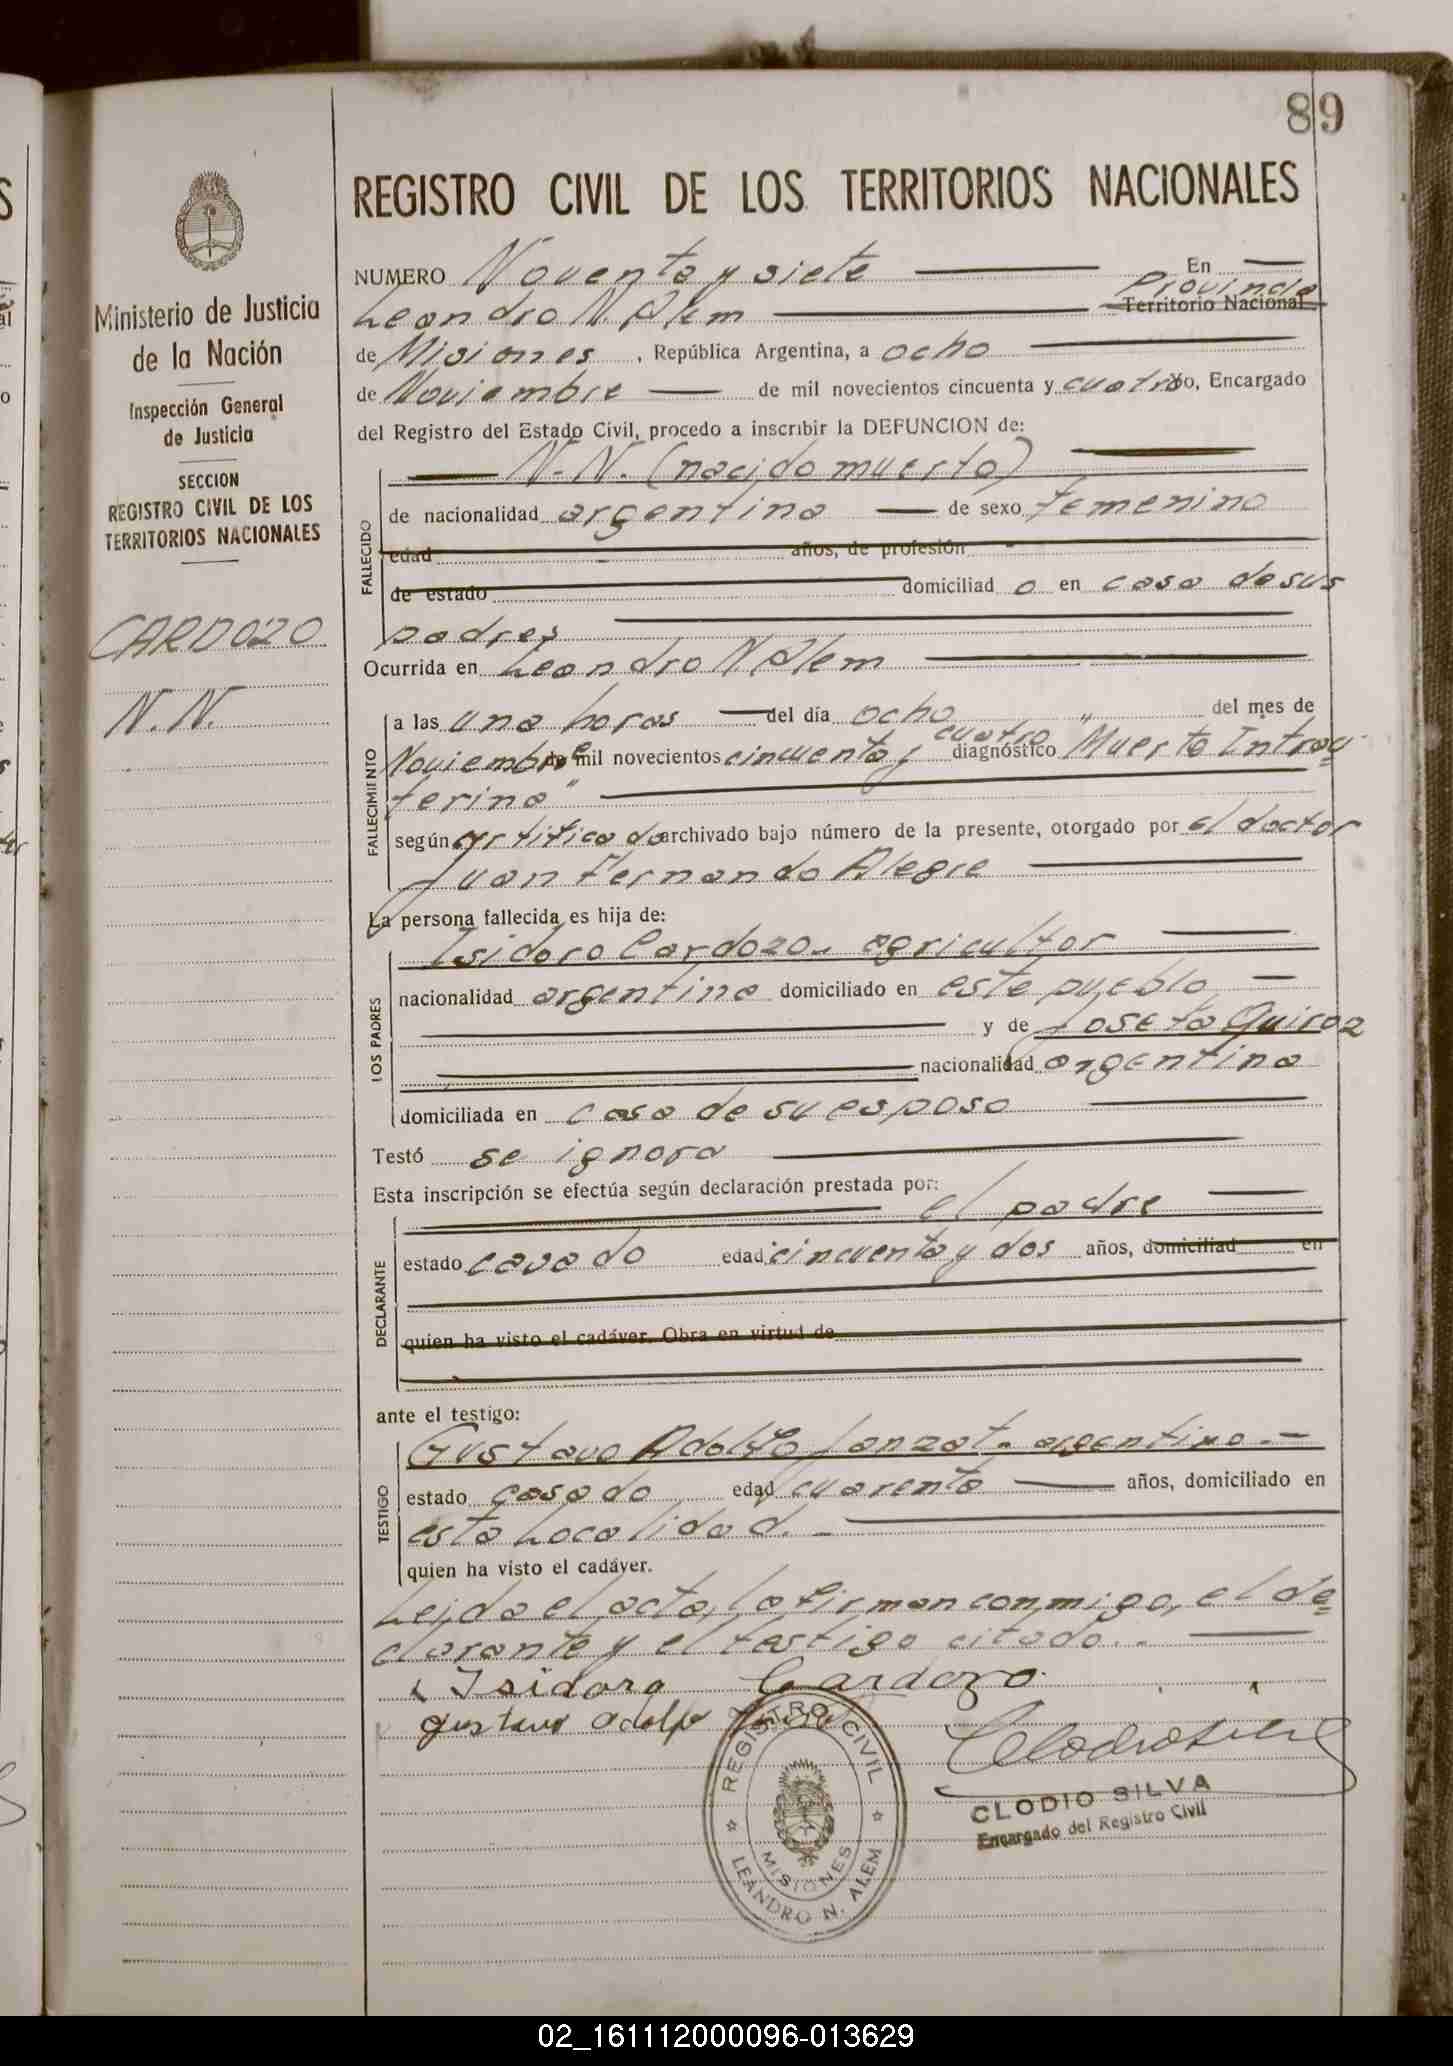 89
REGISTRO CIVIL DE LOS TERRITORIOS NACIONALES
Ministerio de Justicia
de la Nación
Inspección General
de Justicia
SECCION
REGISTRO CIVIL DE LOS
TERRITORIOS NACIONALES
CARDOZO
N.N.
NUMERO Noventa y siete En
Provincia
Leandro N. Alem Territorio Nacional
de Misiones, República Argentina, a ocho
de Noviembre de mil novecientos cincuenta y cuatro Yo, Encargado
del Registro del Estado Civil, procedo a inscribir la DEFUNCION de:
N.N. (nacido muerto)
FALLECIDO
de nacionalidad argentina de sexo femenino
edad años, de profesión
de estado domiciliad o en casa de sus
padres
Ocurrida en Leandro N Alem
FALLECIMIENTO
a las una horas del día ocho del mes de
Noviembre de mil novecientos cincuenta y cuatro diagnóstico "Muerte Intrau=
terina"
según certificado archivado bajo número de la presente, otorgado por el doctor
Juan Fernando Alegre
La persona fallecida es hija de:
LOS PADRES
Isidoro Cardozo.- agricultor
nacionalidad argentina domiciliado en este pueblo
y de Josefa Quiroz
nacionalidad argentina
domiciliada en casa de su esposo
Testó se ignora
Esta inscripción se efectúa según declaración prestada por:
el padre
DECLARANTE
estado casado edad cincuenta y dos años, domiciliad en
quien ha visto el cadáver. Obra en virtud de
ante el testigo:
TESTIGO
Gustavo Adolfo argentino.-
estado casado edad cuarenta años, domiciliado en
esta Localidad.-
quien ha visto el cadáver.
Leída el acta, la firman conmigo, el de=
clarante y el testigo citado.-
Isidoro Cardozo
gustavo adolfo
REGISTRO CIVIL
MISIONES
LEANDRO N. ALEM
Clodio Silva
CLODIO SILVA
Encargado del Registro Civil
02_161112000096-013629